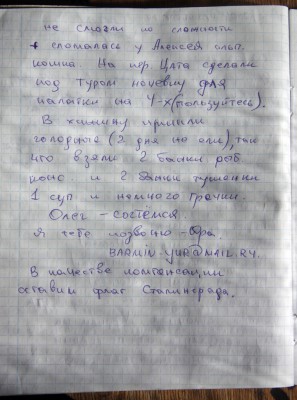 не смогли по сложности
+ сломалась у Алексея альп.
кошка. На пер. Цата сделали
под Туром ночёвку для
палатки на 4-х (пользуйтесь).
В хижину пришли
голодные (2 дня не ели), так
что взяли 2 банки
и 2 банки тушенки
1 суп и немного Гречки.
Олег - состёлся.
Я тебе позвоню - Юра
BARMIN.YUR@MAIL.RU.
В качестве компенсации
оставим флаг Сталинграда.